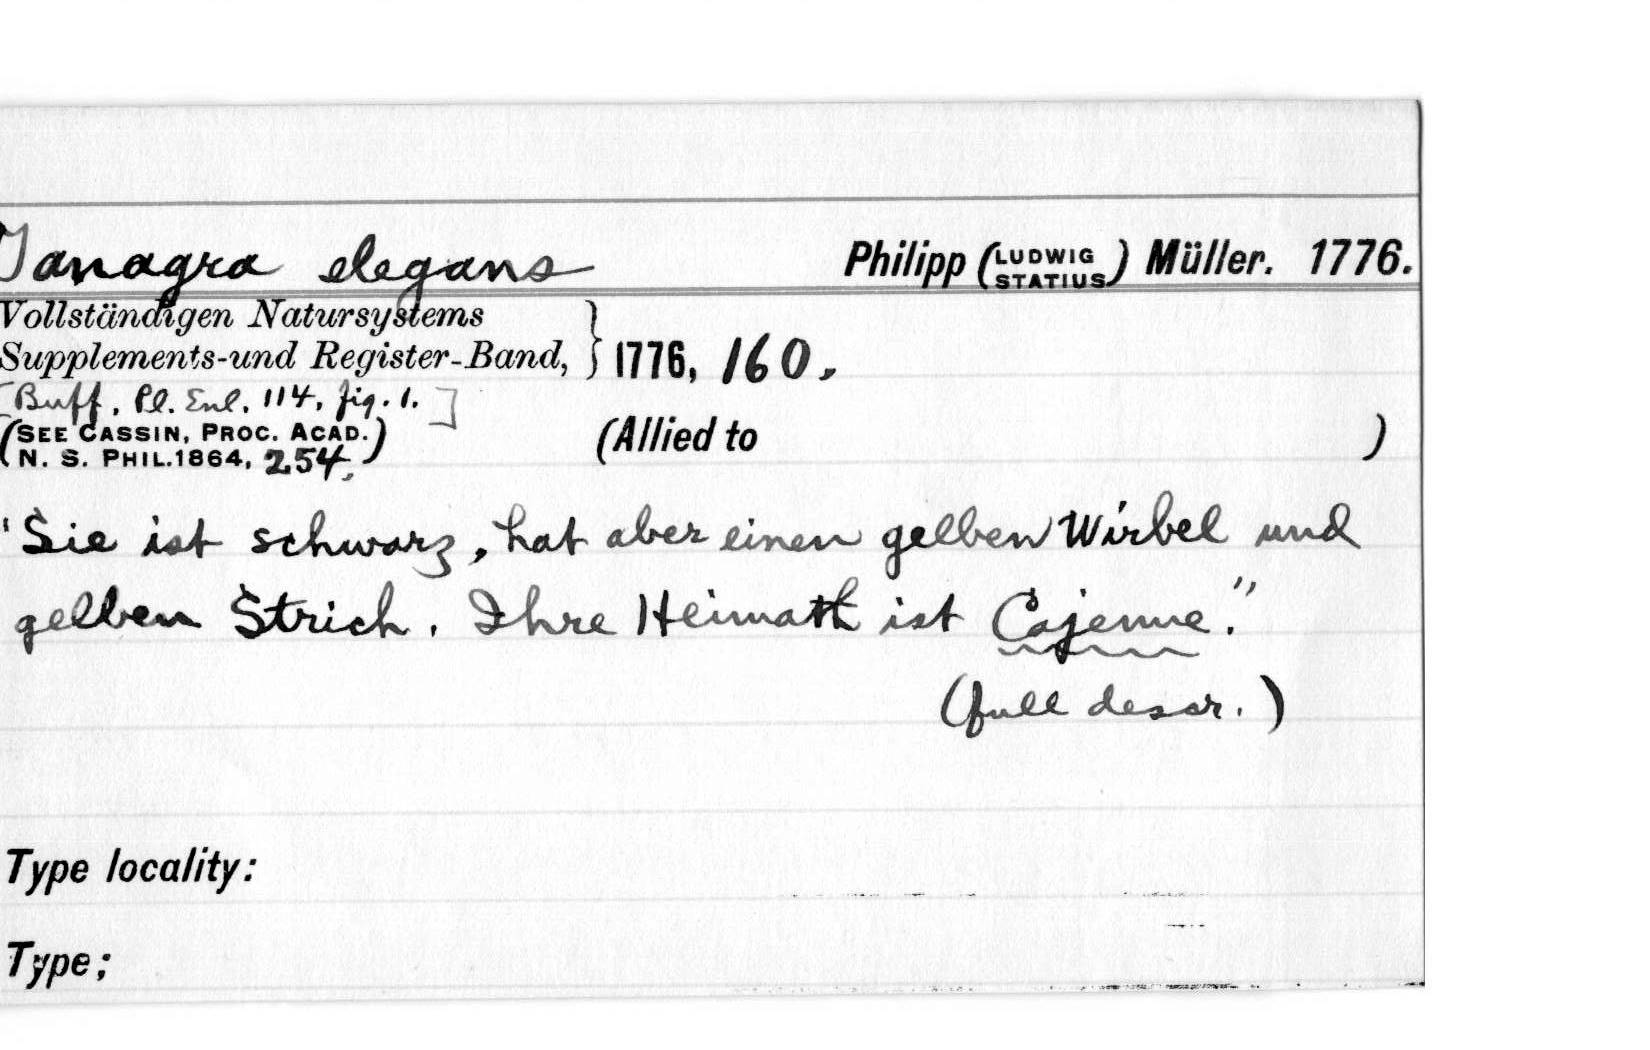 Tanagra elegans Philipp (LUDWIG STATIUS) Müller. 1776.
Vollständigen Natursystems
Supplements-und Register-Band, } 1776, 160.
[Buff. Pl. Enl. 114, fig. 1.]
(SEE CASSIN, PROC. ACAD.
N. S. PHIL. 1864, 254.) (Allied to )
"Sie ist schwarz, hat aber einen gelben Wirbel und
gelben Strich. Ihre Heimath ist Cajenne."
(full descr.)
Type locality:
Type;